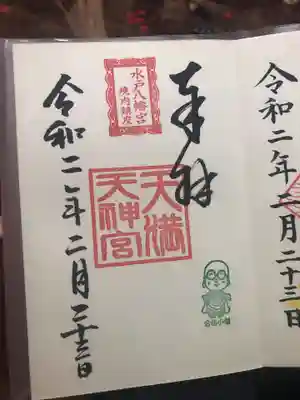 令和二年二月二十三日
奉拝
水戸八幡宮
境内鎮座
天満
天神宮
令和二年二月二十三日